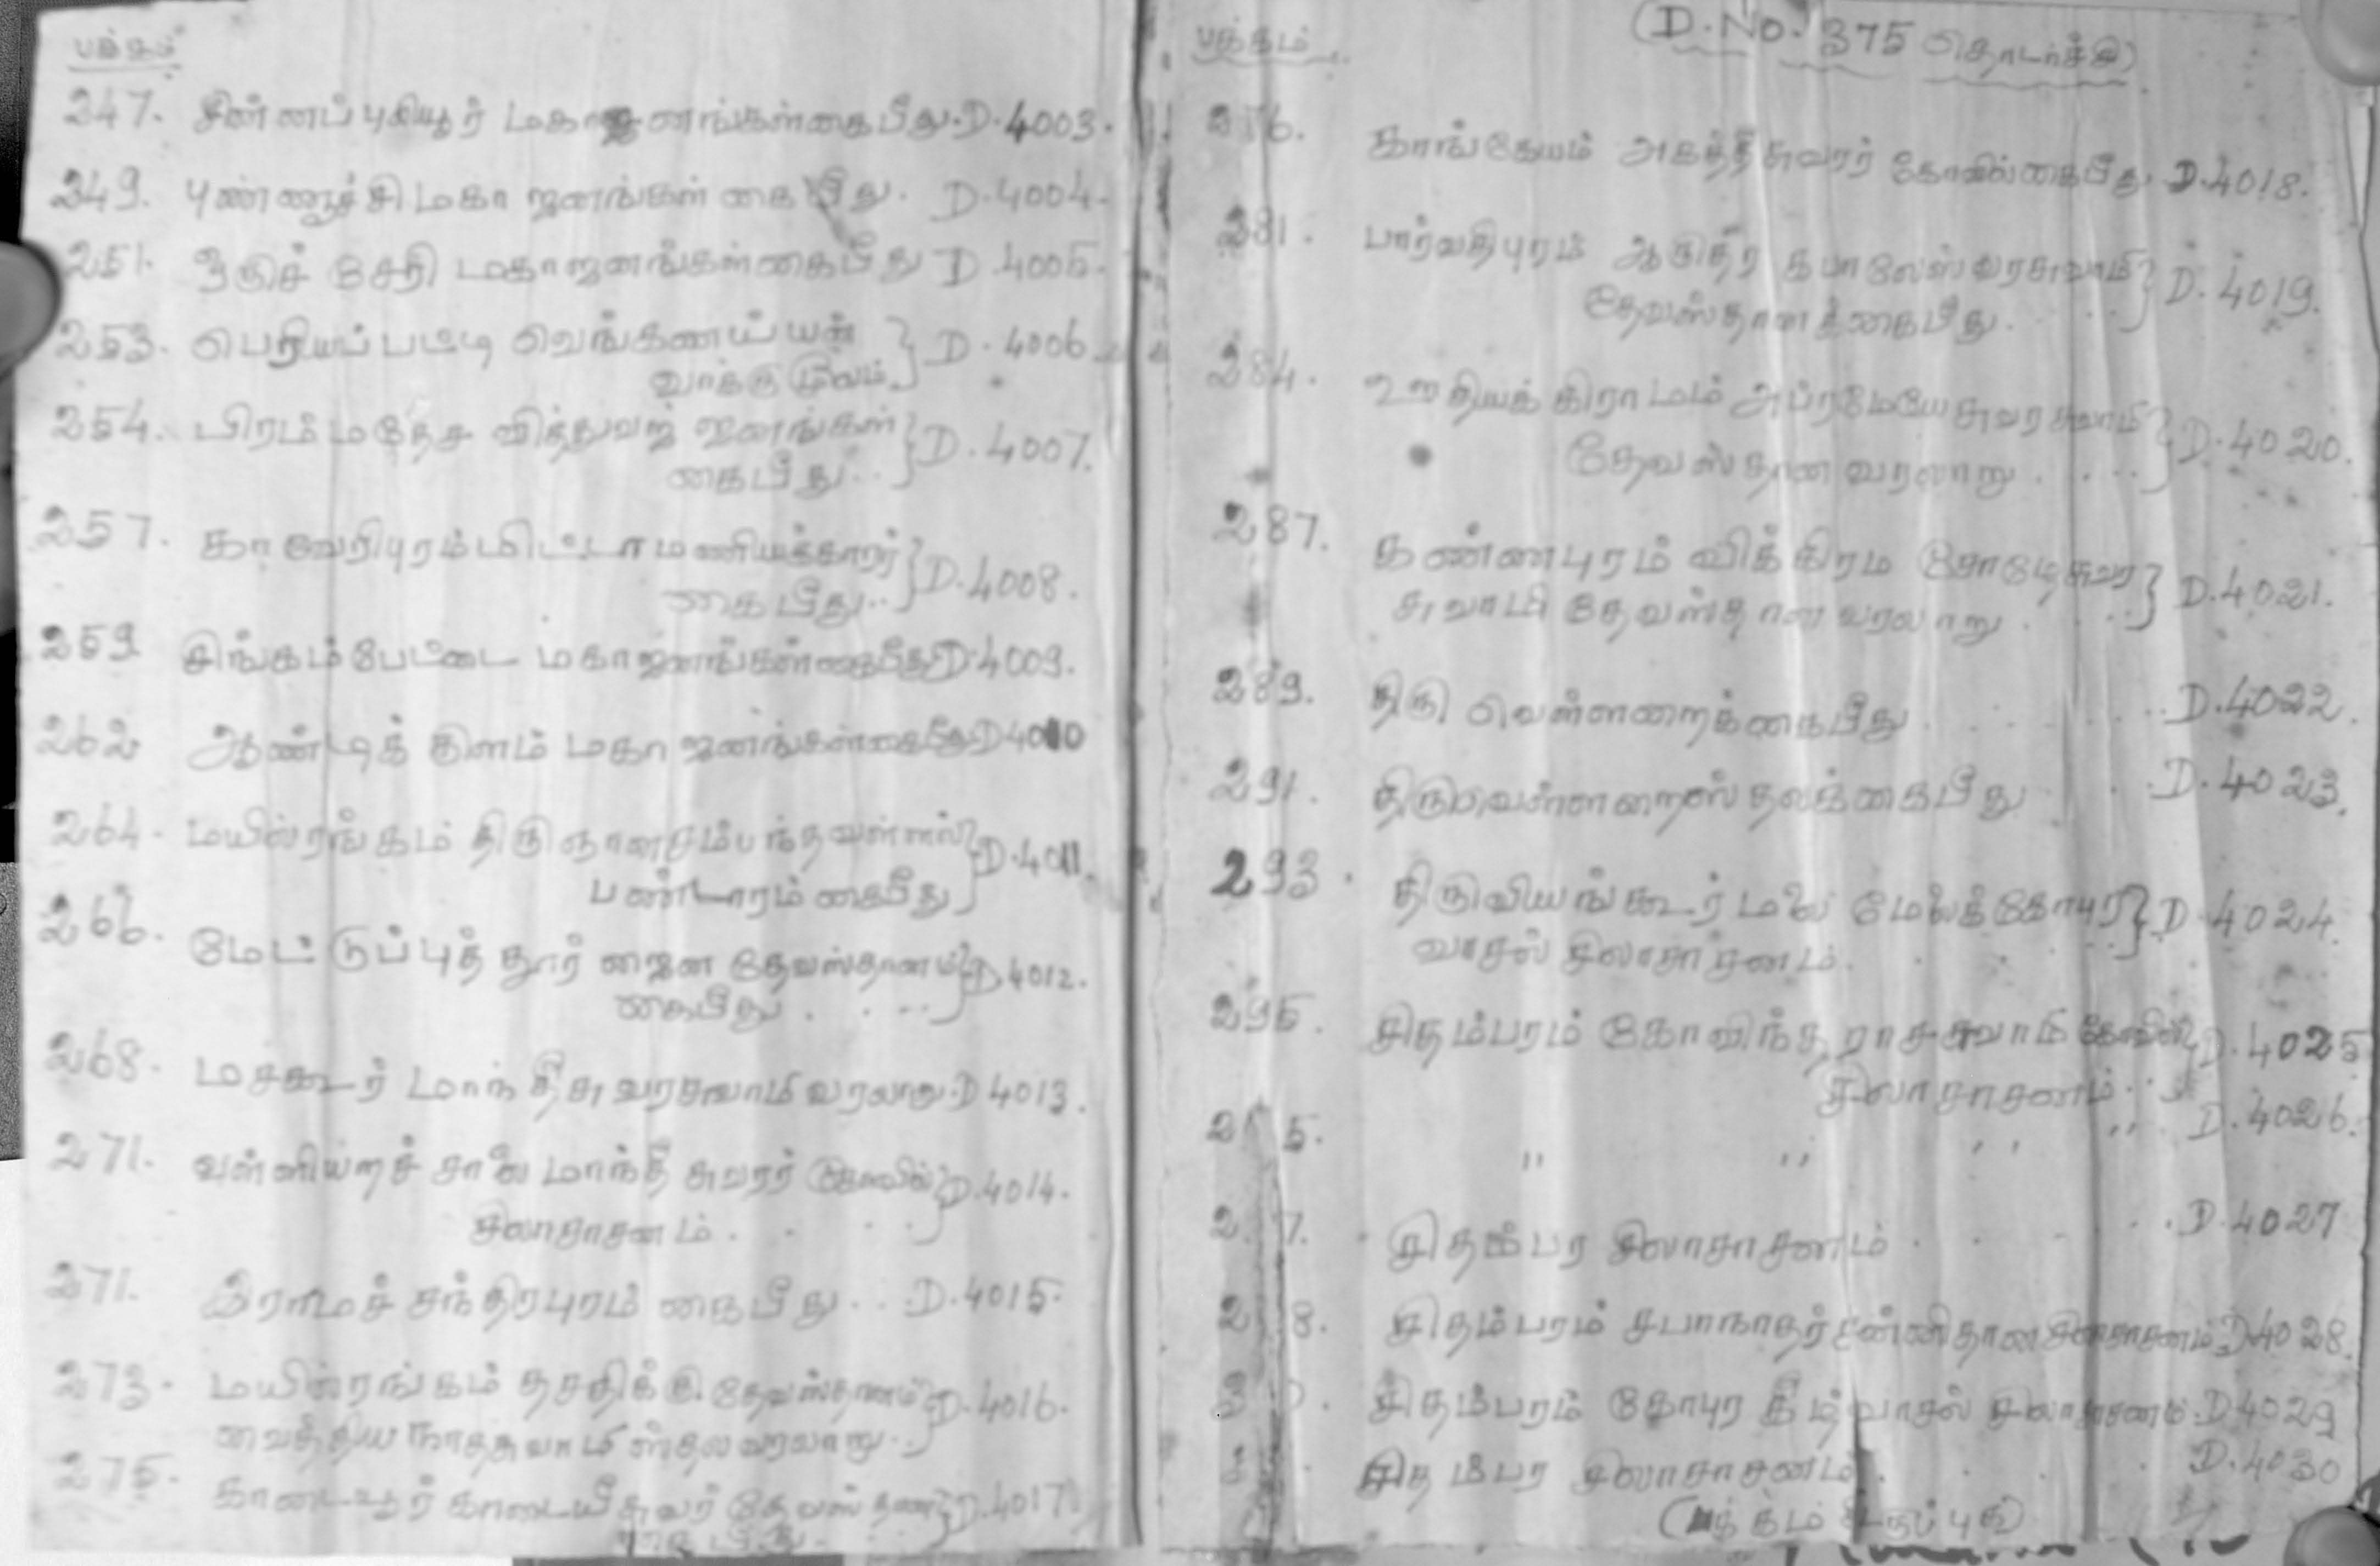 பக்கம்
247. சின்னப்புலியூர் மகாஜனங்கள்கைபீது. D. 4003.
249. புண்ணாச்சி மகா ஜனங்கள் கைபீது. D. 4004.
251. சேரி மகாஜனங்கள்கைபீது D. 4005.
253. பெரியப்பட்டி வெங்கணய்யன் } D. 4006
வாக்குமூலம்.
254. பிரம்மதேச வித்துவஜ் ஜனங்கள் } D. 4007.
கைபீது..
257. காவேரிபுரம் மிட்டா மணியக்காறர் } D. 4008.
கைபீது..
259 சிங்கம்பேட்டை மகாஜனங்கள்கைபீது D 4009.
262 ஆண்டிக் குளம் மகா ஜனங்கள்கைபீது D 4010
264. மயில்ரங்கம் திருஞானசம்பந்தவள்ளல் } D. 4011.
பண்டாரம் கைபீது
266. மேட்டுப்புத்தூர் ஜைன தேவஸ்தானம் } D. 4012.
கைபீது. . ...
268. மாந்தீசுவரசுவாமி வரலாறு. D 4013.
271. வள்ளியறச்சாலை மாந்தீசுவரர் கோவில் } D. 4014.
சிலாசாசனம் . . . .
271. இராமச் சந்திரபுரம் கைபீது. . . D. 4015.
273. மயில்ரங்கம் தேவஸ்தானம் } D. 4016.
வைத்தியநாதசுவாமி ஸ்தலவரலாறு. .
275. காடையூர் காடையீசுவர் தேவஸ்தான } D. 4017.
கைபீது.
பக்கம்
(D. No. 375 தொடர்ச்சி)
276. காங்கேயம் அகத்தீசுவரர் கோவில்கைபீது D. 4018.
281. பார்வதிபுரம் கபாலேஸ்வரசுவாமி } D. 4019.
தேவஸ்தானத்கைபீது. . . . .
284. ஊதியக் கிராமம் அப்ரமேயேசுவரசுவாமி } D. 4020.
தேவஸ்தான வரலாறு . . . .
287. கண்ணபுரம் விக்கிரம சோழேசுவர } D. 4021.
சுவாமி தேவஸ்தான வரலாறு . . .
289. திரு வெள்ளறைக்கைபீது . . . . . D. 4022.
291. திருவெள்ளறைஸ்தலக்கைபீது . . . D. 4023.
293. திருவியங்கூர்மலை மேலக்கோபுர } D. 4024.
வாசல் சிலாசாசனம். . . .
295. சிதம்பரம் கோவிந்தராசசுவாமி கோவில் } D. 4025
சிலாசாசனம். . .
5. ,, ,, ,, ,, D. 4026.
2 7. சிதம்பர சிலாசாசனம் . . . . . D. 4027
2 8. சிதம்பரம் சபாநாதர் சன்னிதான சிலாசாசனம் D. 4028.
சிதம்பரம் கோபுர கீழ்வாசல் சிலாசாசனம். D 4029
சிதம்பர சிலாசாசனம் . . . . D. 4030